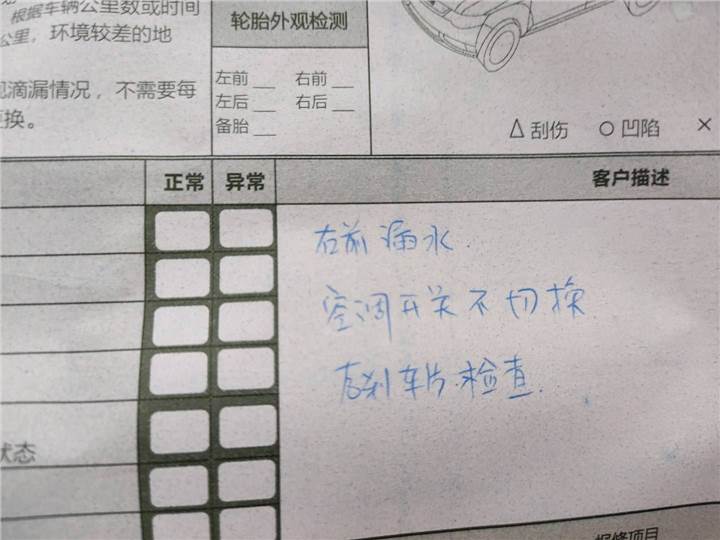 根据车辆公里数或时间
公里，环境较差的地
现滴漏情况，不需要每
换。
轮胎外观检测
左前 __ 右前 __
左后 __ 右后 __
备胎 __
△ 刮伤 ○ 凹陷 ×
正常 异常 客户描述
右前漏水.
空调开关不切换
后刹车片检查.
状态
报修项目